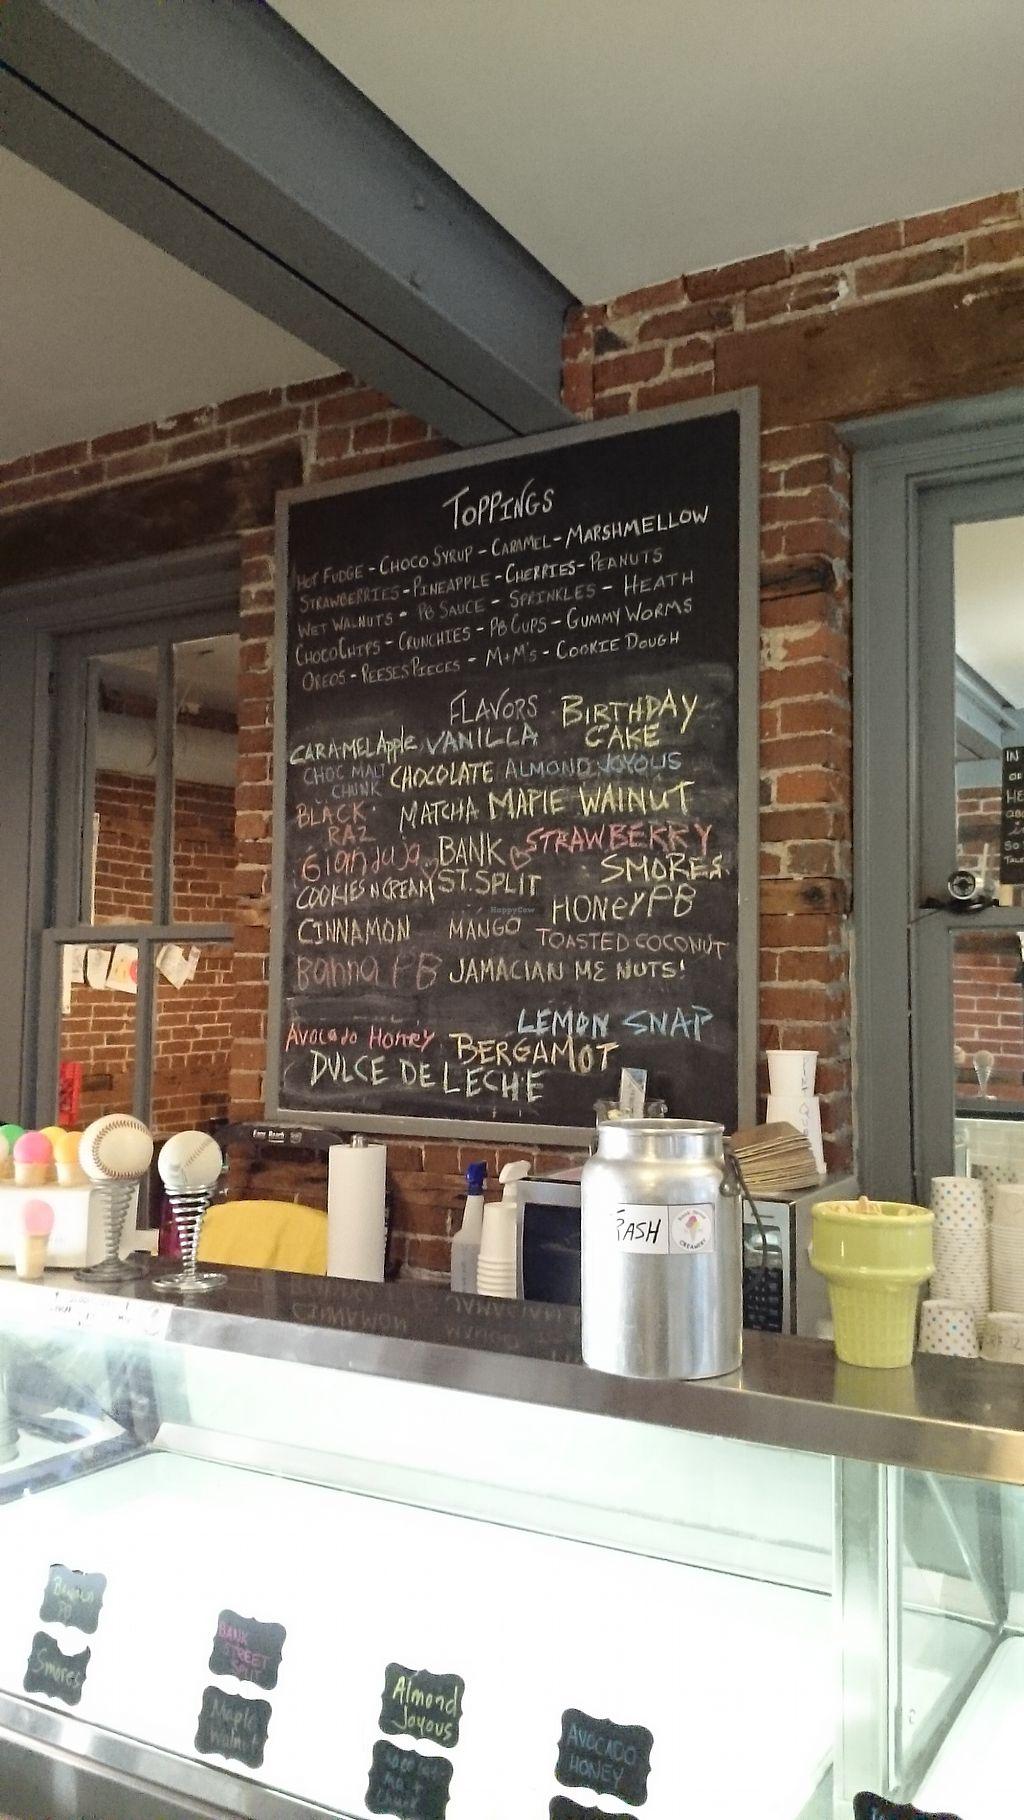 TOPPINGS
HOT FUDGE - CHOCO SYRUP - CARAMEL - MARSHMELLOW
STRAWBERRIES - PINEAPPLE - CHERRIES - PEANUTS
WET WALNUTS - PB SAUCE - SPRINKLES - HEATH
CHOCO CHIPS - CRUNCHIES - PB CUPS - GUMMY WORMS
OREOS - REESES PIECES - M+M's - COOKIE DOUGH
FLAVORS
BIRTHDAY
CAKE
CARAMEL Apple
VANILLA
CHOC MALT
CHUNK
CHOCOLATE
ALMOND JOYOUS
BLACK
RAZ
MATCHA
MAPlE WAlNUT
Gianduja
BANK
ST. SPLIT
STRAWBERRY
SMORES
COOKIES N CREAM
HONEY PB
CINNAMON
MANGO
TOASTED COCONUT
Banna PB
JAMACIAN ME NUTS!
HappyCow
LEMON SNAP
Avocado Honey
BERGAMOT
DULCE DE LECHE
IN
Easy Reach
TRASH
CREAMERY
PB
BANK
STREET
SPLIT
Smores
Maple
Walnut
Almond
Joyous
AVOCADO
HONEY